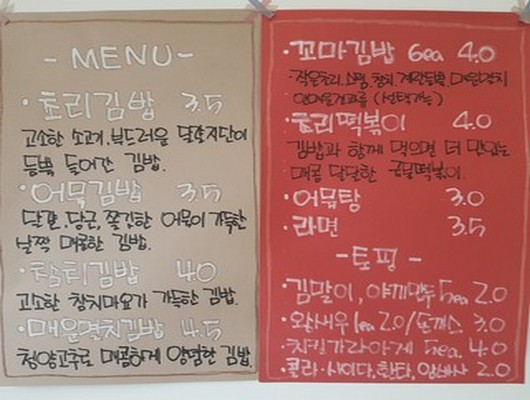 - MENU -
· 초리김밥 3.5
고소한 소고기, 부드러운 달걀지단이
듬뿍 들어간 김밥.
· 어묵김밥 3.5
달걀, 당근, 쫄깃한 어묵이 가득한
날짝 매콤한 김밥.
· 참치김밥 4.0
고소한 참치마요가 가득한 김밥.
· 매운멸치김밥 4.5
청양고추로 매콤하게 양념한 김밥.
· 꼬마김밥 6ea 4.0
(선택가능)
· 초리떡볶이 4.0
김밥과 함께 먹으면 더 맛있는
매콤 달달한 국물떡볶이.
· 어묵탕 3.0
· 라면 3.5
- 토핑 -
· 김말이, 야끼만두 5ea 2.0
· 왕새우 1ea 2.0 / 돈까스 3.0
· 치킨가라아게 5ea 4.0
· 콜라 · 사이다, 환타, 2.0